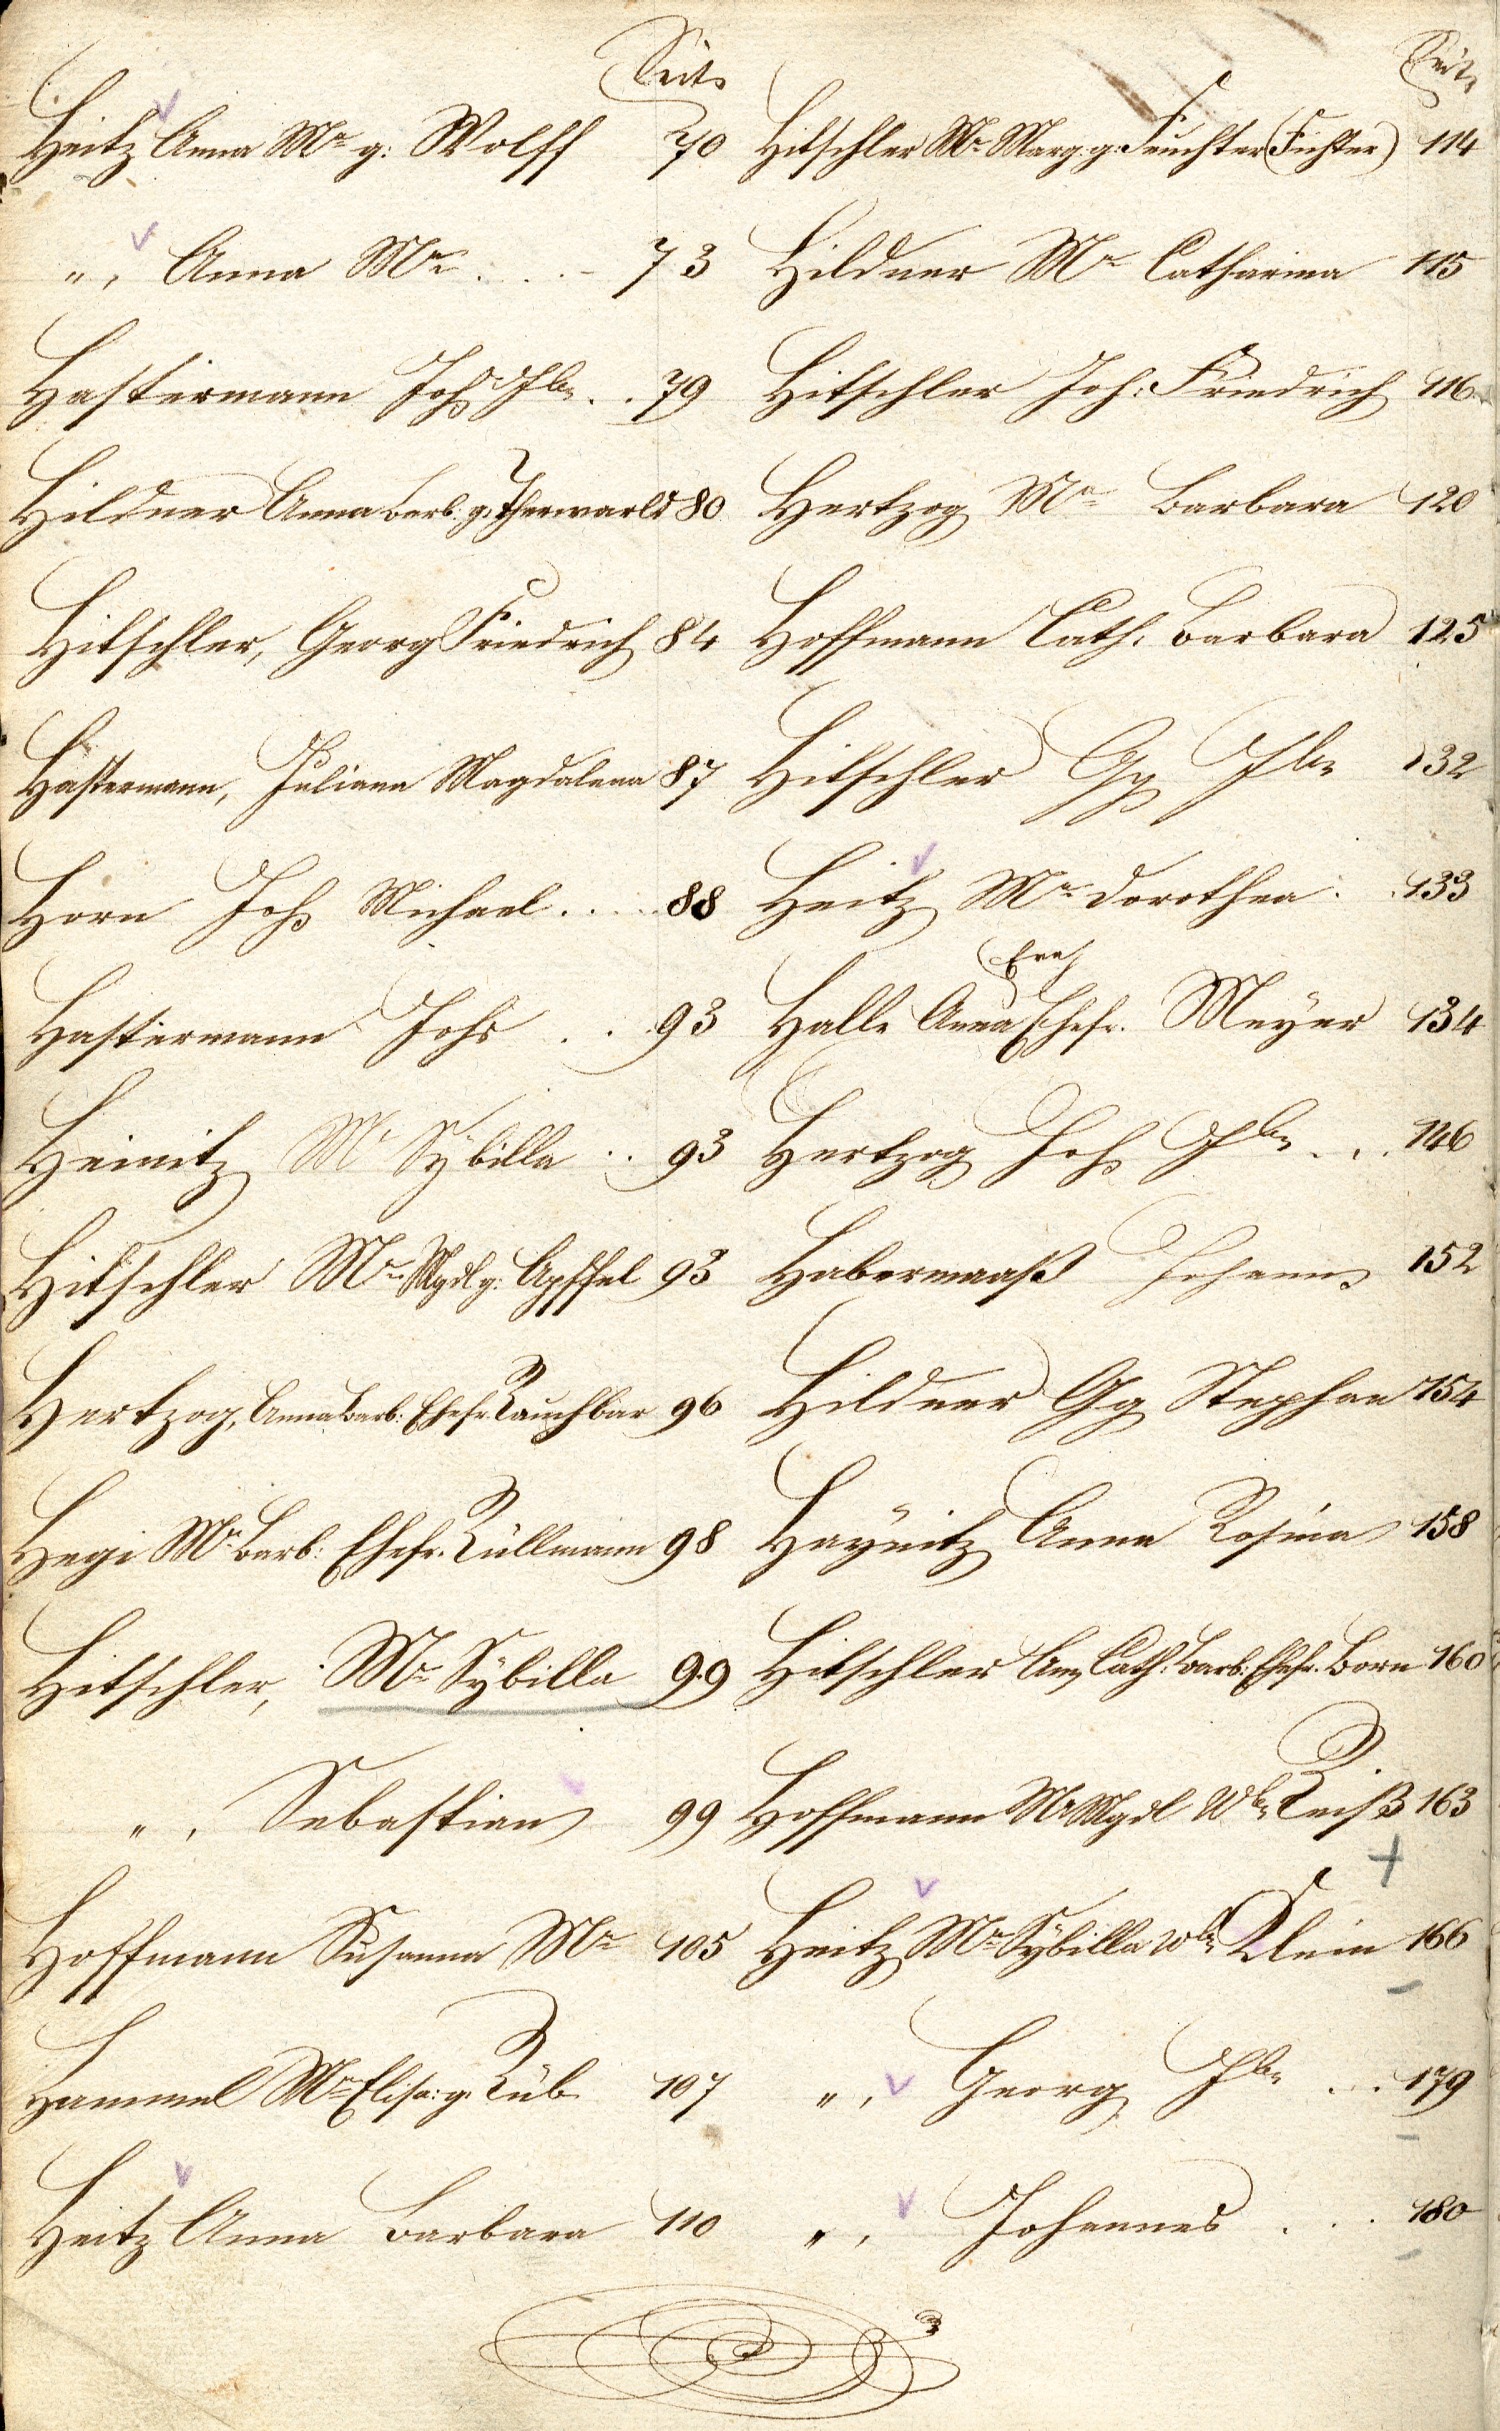 Seite
Heitz Anna Mª g: Wolff 70
„ , Anna Mª . . . - 73
Hastermann Johs Jbᵉ . . 79
Hildner Anna Barb: g: Therwarld 80
Hitschler, Georg Friedrich 84
Hastermann, Juliana Magdalena 87
Horn Johs Michael . . . . . 88
Hastermann Johs . . . 93
Heinitz M Sÿbilla . . 93
Hitschler Mª Mgdl g: Apffel 93
Hertzog, Anna Barb: Ehefr. Rauchbar 96
Hegi Mª Barb: Ehefr. Rüllmann 98
Hitschler, Mª Sÿbilla 99
„ , Sebastian 99
Hoffmann Susanna Mª 105
Hammel Mª Elisa: g. Rüb 107
Heitz Anna Barbara 110
Seite
Hitschler Mª Marg: g: Feuchter (Fichter) 114
Hildner Mª Catharina 115
Hitschler Joh: Friedrich 116
Hertzog Mª Barbara 120
Hoffmann Cath: Barbara 125
Hitschler Gg Jbᵉ 132
Heitz Mª Dorothea . . 133
Eva
Halle Anna Ehefr. Meÿer 134
Hertzog Johs Jbᵉ . . . 146
Habermaaß Johann 152
Hildner Gg Stephan 154
Haÿnitz Anna Rosina 158
Hitschler Cath: Barb: Ehefr. Born 160
Hoffmann M Mgdl Wbᵉ Reiß 163
Heitz Mª Sÿbilla Wbᵉ Klein 166
„ , Georg Jbᵉ . . . 179
„ , Johannes . . . 180